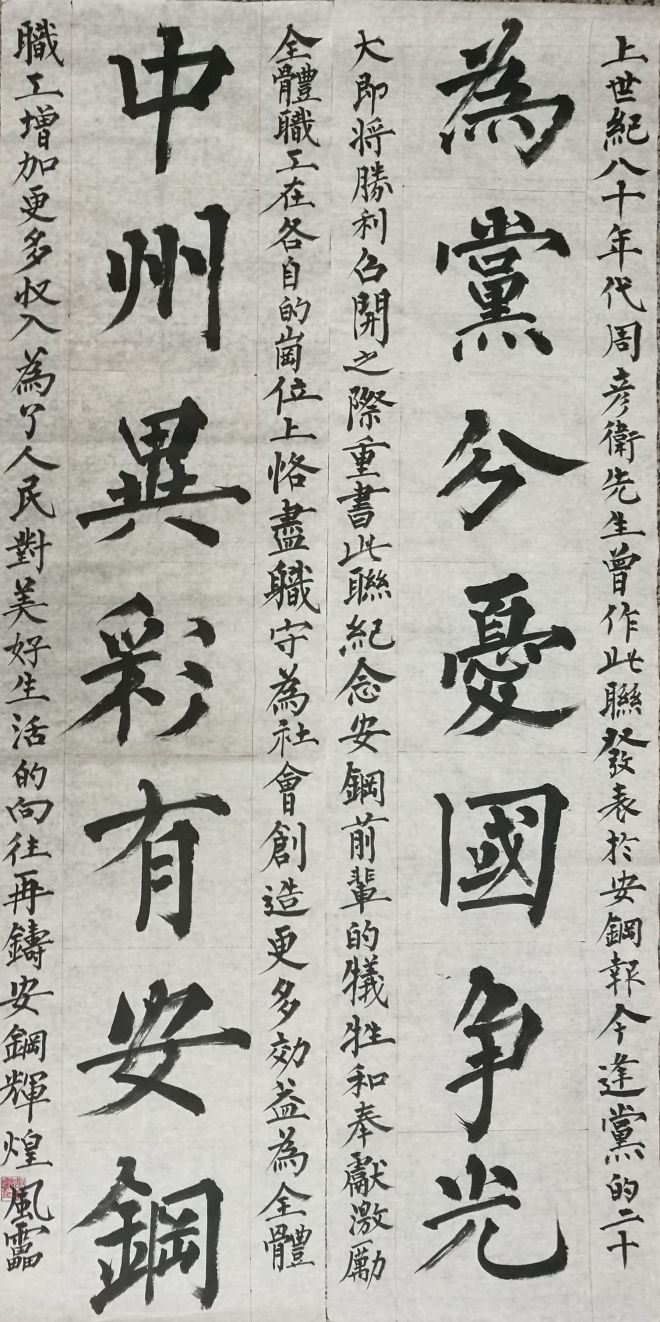 上世紀八十年代周彦衛先生曾作此聯發表於安鋼報今逢黨的二十
為黨分憂國争光
大即将勝利召開之際重書此聯紀念安鋼前輩的犧牲和奉獻激勵
全體職工在各自的崗位上恪盡職守為社會創造更多効益為全體
中州異彩有安鋼
職工增加更多收入為了人民對美好生活的向往再鑄安鋼輝煌風靁